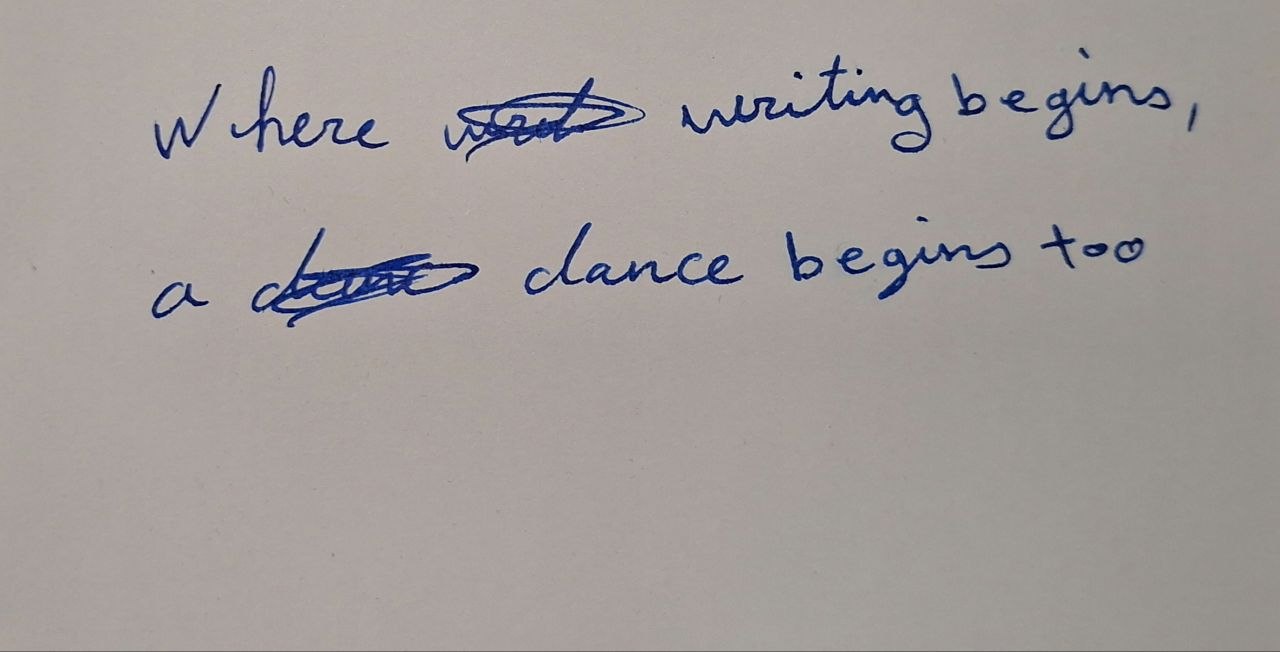 Where writing begins,
a dance begins too